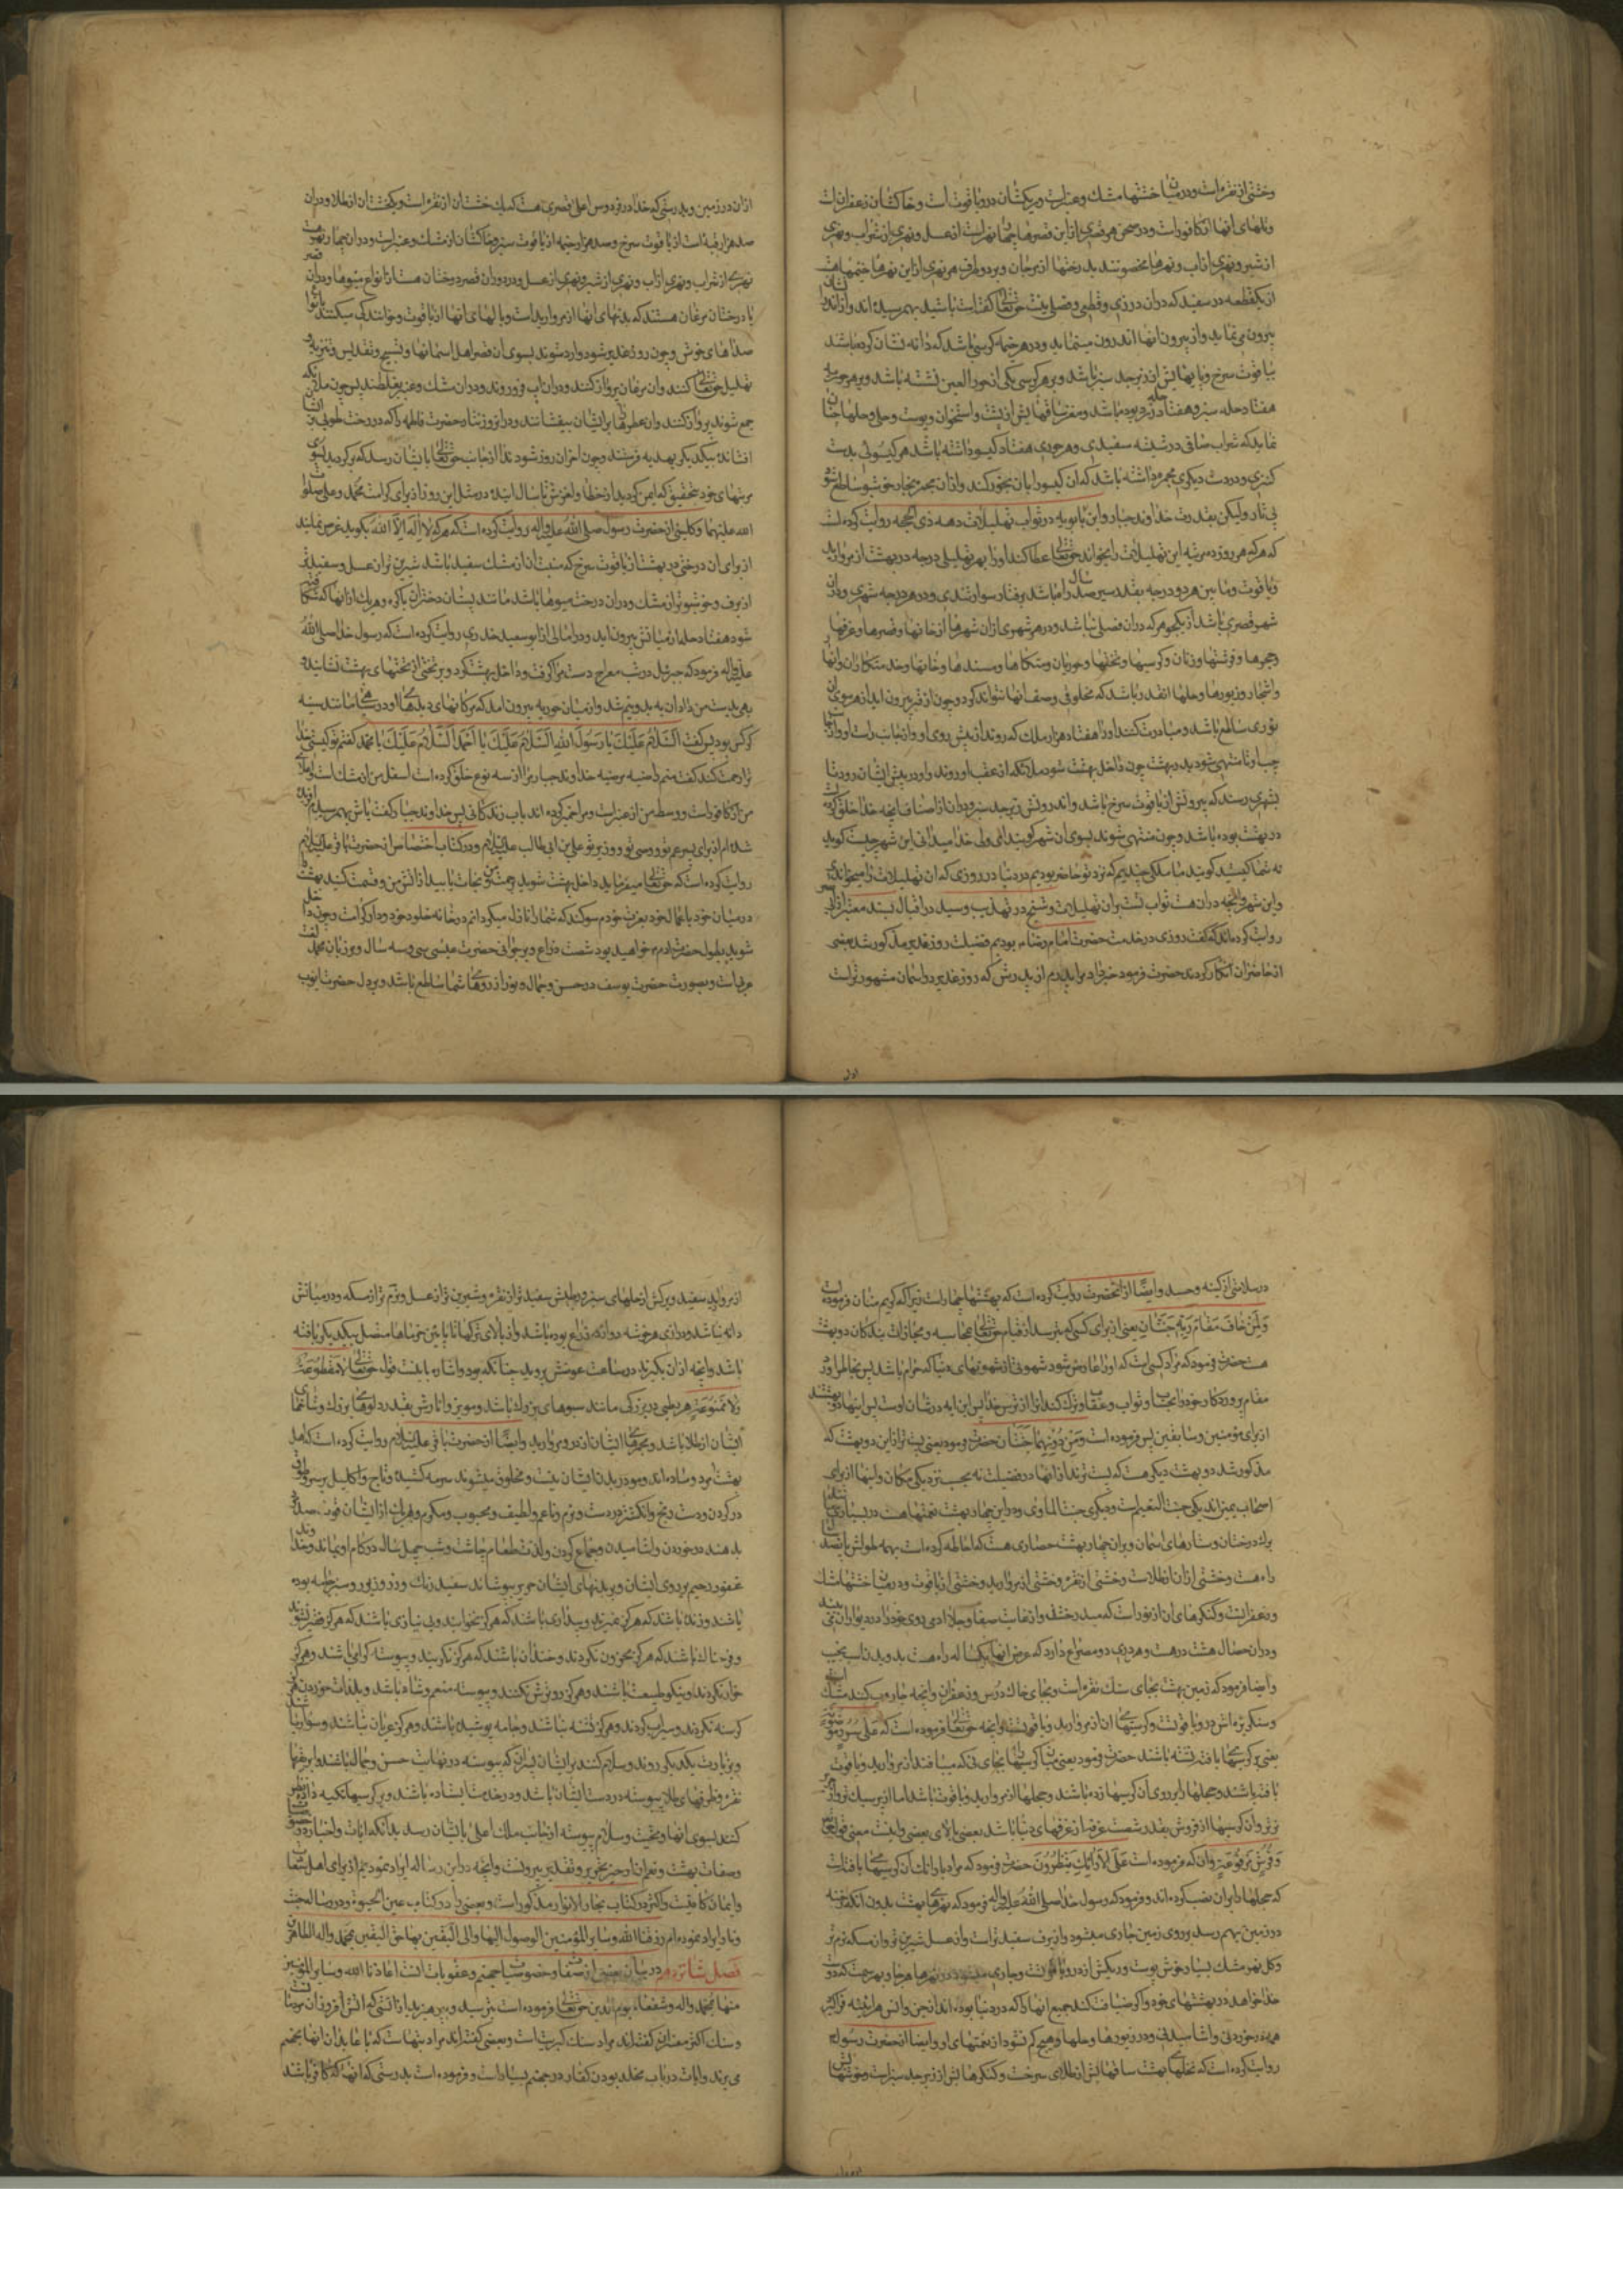 وخشتی از نقره است و در میان خشتها مشک و عنبر است و ریکشان در و یاقوتست و خاکشان زعفرانست
و تلهای آنها از کافور است و در صحن هر قصری از این قصرها چهار نهر است از عسل و نهری از شراب و نهری
از شیر و نهری از آب و نهرها محفوفند بدرختها از مرجان و بر دو طرف هر نهری از این نهرها خیمها هست
از یکقطعه در سفید که در آن درزی و قطعی و فصلی نیست حق تعالی گفته است باشید بهم رسیده اند و از اندرون
بیرون می نماید و از بیرون آنها اندرون مینماید و در هر خیمه کرسی باشد که دانه نشان کرده باشند
بیاقوت سرخ و پایهایش از زبرجد سبز باشد و بر هر کرسی یکی از حور العین نشسته باشد و بر هر حوریه
هفتاد حله سبز و هفتاد حله زرد بوده باشد و مغز ساقهایش از پشت و استخوان و پوست و حلی و حلها چنان
نماید که شراب صافی در شیشه سفیدی و هر حوری هفتاد گیسو داشته باشد هر گیسوئی بدست
کنیزی و در دست دیگری مجمره داشته باشد که آن گیسو را بآن بخور کند و از آن مجمر بخار خوشبو ساطع شود
بی نار و لیکن بقدرت خداوند جبار و ابن بابویه در ثواب تهلیلات دهه ذی الحجه روایت کرده است
که هر که هر روز ده مرتبه این تهلیلات را بخواند حق تعالی عطا کند او را بهر تهلیلی درجه در بهشت از مروارید
و یاقوت و ما بین هر دو درجه بقدر سیر صد سال راه باشد برفتار سوار تندی و در هر درجه شهری و در آن
شهر قصری باشد از یک جوهر که در آن فصلی نباشد و در هر شهری از آن شهرها از خانها و قصرها و غرفها
و حجرها و فرشها و زنان و کرسیها و تختها و حوریان و متکاها و مسندها و خانها و خدمتکاران و نهرها
و اشجار و زیورها و حلها آنقدر باشد که مخلوقی وصف آنها نتواند کرد و چون از قبر بیرون آید از هر موی او
نوری ساطع باشد و مبادرت کنند او را هفتاد هزار ملک که روند از پیش روی او و از جانب راست او و از جانب
چپ او تا منتهی شود بدر بهشت چون داخل بهشت شود ملائکه از عقب او روند و او در پیش ایشان رود تا
بشهری رسند که بیرونش از یاقوت سرخ باشد و اندرونش زبرجد سبز و در آن از اصناف آنچه خدا خلق کرده
در بهشت بوده باشد و چون منتهی شوند بسوی آن شهر گویند ای ولی خدا میدانی این شهر چیست گوید
نه شما کیستید گویند ما ملکی چندیم که نزد تو حاضر بودیم در دنیا در روزی که آن تهلیلات را میخواندی
و این شهر و آنچه در آن هست ثواب تست بر آن تهلیلات و شیخ در تهذیب و سید در اقبال بسند معتبر از
روایت کرده اند که گفت روزی در خدمت حضرت امام رضا ع بودیم فضیلت روز غدیر مذکور شد بعضی
از حاضران انکار کردند حضرت فرمود خبر داد مرا پدرم از پدرش که روز غدیر در آسمان مشهورتر است
از آن در زمین و بدرستی که خدا را در فردوس اعلی قصری هست که یک خشت آن از نقره است و یکخشت آن از طلا و در آن
صد هزار قبه است از یاقوت سرخ و صد هزار خیمه از یاقوت سبز و خاکشان از مشک و عنبر است و در آن چهار نهر است
نهری از شراب و نهری از آب و نهری از شیر و نهری از عسل و در دور آن قصر درختان هست از انواع میوها و در آن
با درختان مرغان هستند که بدنهای آنها از مروارید است و بالهای آنها از یاقوت و خوانندگی میکنند بانواع
صداهای خوش و چون روز غدیر شود وارد شوند بسوی آن قصر اهل آسمانها و تسبیح و تقدیس و تنزیه و
تهلیل حق تعالی کنند و آن مرغان پرواز کنند و در آن آب فرو روند و در آن مشک و عنبر بغلطند پس چون ملائکه
جمع شوند پرواز کنند و آن عطرها بر ایشان بیفشانند و در آن روز نثار حضرت فاطمه را که درخت طوبی
افشانده بیکدیگر بهدیه فرستند و چون آخر آن روز شود ندا از جانب حق تعالی بایشان رسد که برگردید بسوی
مرتبهای خود بتحقیق که ایمن گردیدید از خطا و لغزش تا سال آینده در مثل این روز از برای کرامت محمد و علی صلوات
الله علیهما و کلینی از حضرت رسول صلی الله علیه و آله روایت کرده است که هر که لا اله الا الله بگوید غرس نمایند
از برای او درختی در بهشت از یاقوت سرخ که منبت آن از مشک سفید باشد شیرین تر از عسل و سفیدتر
از برف و خوشبوتر از مشک و در آن درخت میوها باشد مانند پستان دختران باکره و هر یک از آنها که شکافته
شود هفتاد حله از میانش بیرون آید و در امالی از ابو سعید خدری روایت کرده است که رسول خدا صلی الله
علیه و آله فرمود که جبرئیل در شب معراج دست مرا گرفت و داخل بهشت کرد و بر تختی از تختهای بهشت نشانید و
بهی بدست من داد آن به بدو نیم شد و از میان حوریه بیرون آمد که مژگانهای دیدهای او در سیاهی مانند سینه
کرکس بود پس گفت السَّلامُ عَلَیْکَ یا رَسُولَ اللهِ اَلسَّلامُ عَلَیْکَ یا اَحْمَدُ اَلسَّلامُ عَلَیْکَ یا مُحَمَّد گفتم تو کیستی خدا
ترا رحمت کند گفت منم راضیه مرضیه خداوند جبار مرا از سه نوع خلق کرده است اسفل من از مشک است و اعلای
من از کافور است و وسط من از عنبر است و مرا خمیر کرده اند بآب زندگانی پس خداوند جبار گفت باش بهم رسیدم
شده ام از برای پسر عم تو و وصی تو و وزیر تو علی بن ابی طالب علیه السلام و در کتاب اختصاص از حضرت باقر علیه السلام
روایت کرده است که حق تعالی میفرماید داخل بهشت شوید برحمت من و نجات یابید از آتش من و قسمت کنید بهشت را
در میان خود باعمال خود بعزت خودم سوگند که شما را نازل میگردانم در خانه خلود خود و دار کرامت و چون داخل
شوید بطول حضرت آدم خواهید بود شصت ذراع و بر جوانی حضرت عیسی سی و سه سال و بر زبان محمد
عربیست و بصورت حضرت یوسف در حسن و جمال و نور از روهای شما ساطع باشد و بر دل حضرت ایوب
در سلامتی از کینه و حسد و ایضا از آنحضرت روایت کرده است که بهشتها چهار است زیرا که کریم منان فرموده است
وَلِمَنْ خافَ مَقامَ رَبِّهِ جَنَّتانِ یعنی از برای کسی که بترسد از قیام حق تعالی بمحاسبه و مجازات بندگان دو بهشت
هست حضرت فرمود که مراد کسی است که او را عارض شود شهوتی از شهوتهای دنیا که حرام باشد پس بخاطر آورد
مقام پروردگار خود را بحساب و ثواب و عقاب و ترک کند آنرا از ترس خدا پس این آیه در شان اوست پس اینها دو بهشتند
از برای مؤمنین و سابقین پس فرموده است وَمِنْ دُونِهِما جَنَّتانِ حضرت فرمود یعنی پست تر از این دو بهشت که
مذکور شد دو بهشت دیگر هست که پست ترند از آنها در فضیلت نه بحسب نزدیکی مکان و اینها از برای
اصحاب یمین اند یکی جنت النعیم است و دیگری جنت المأوی و در این چهار بهشت نعمتها هست در بسیاری مانند
برگ درختان و ستارهای آسمان و بر این چهار بهشت حصاری هست که احاطه کرده است بهمه طولش پانصد
راه هست و خشتی از آن از طلاست و خشتی از نقره و خشتی از مروارید و خشتی از یاقوت و در میان خشتها مشک
و زعفرانست و کنگرهای آن از نور است که میدرخشد و از غایت صفا و جلا آدمی روی خود را در دیوار آن می بیند
و در آن حصار هشت در هست و هر دری دو مصراع دارد که عرض آنها یکساله راه هست بدویدن اسب نجیب
و ایضا فرمود که زمین بهشت بجای سنگ نقره است و بجای خاک ورس و زعفران و آنچه جاروب کنند مشک
و سنگریزه اش در و یاقوتست و کرسیهای آن از مروارید و یاقوتست و آنچه حق تعالی فرموده است که عَلی سُرُرٍ مَوْضُونَة
یعنی بر کرسیها بافته نشسته باشند حضرت فرمود یعنی میان کرسیها بجای نی که میبافند از مروارید و یاقوت
بافته باشند و حجلها را بر روی آن کرسیها زده باشند و حجلها از مروارید و یاقوت باشد اما از پر سبک تر و از حریر
نرم تر و آن کرسیها از فروش بقدر شصت غرفه از غرفهای دنیا باشد بعضی بالای بعضی و اینست معنی قول حق تعالی
وَفُرُشٍ مَرْفُوعَةٍ و آن که فرموده است عَلَی الاَرائِکِ یَنْظُرُونَ حضرت فرمود که مراد بارائک آن کرسیها بافته است
که حجلها را بر آن نصب کرده اند و فرمود که رسول خدا صلی الله علیه و آله فرمود که نهرهای بهشت بدون آنکه رخنه
در زمین بهم رسد بر روی زمین جاری میشود و از برف سفیدتر است و از عسل شیرین تر و از مسکه نرم تر
و گل نهر مشک بسیار خوش بوست و ریگش از در و یاقوتست و جاری میشود در نهرها هر جا و بهر سمت که دوست
خدا خواهد و در بهشتهای خود و اگر ضیافت کند جمیع آنها را که در دنیا بوده اند از جن و انس هر آینه فرا گیرد
همه را خوردنی و آشامیدنی و در زیورها و حلها و هیچ کم نشود از نعمتهای او و ایضا از حضرت رسول
روایت کرده است که نخلهای بهشت ساقهایش از طلای سرخست و کنگرهایش از زبرجد سبز است و خوشهایش
از مروارید سفید و برگش از حلهای سبز و رطبش سفیدتر از نقره و شیرین تر از عسل و نرم تر از مسکه و در میانش
دانه نباشد و درازی هر خوشه دوازده ذراع بوده باشد و از بالای ترکها تا پائین خرماها متصل بیکدیگر بافته
باشد و آنچه از آن بگیرند در ساعت عوضش بروید چنانکه بود و اشاره باینست قول حق تعالی لا مَقْطُوعَةٍ
وَلا مَمْنُوعَةٍ هر رطبی در بزرگی مانند سبوهای بزرگ باشد و موز و انارش بقدر دلوهای بزرگ و شانهای
ایشان از طلا باشد و مجمرهای ایشان از در و مروارید و ایضا از حضرت باقر علیه السلام روایت کرده است که اهل
بهشت مرد و ساده اند و مو در بدن ایشان نیست و مخلوق میشوند سرمه کشیده و تاج و اکلیل بر سر و طوق
در گردن و دست رنج و انگشتر در دست و نرم و ناعم و لطیف و محبوب و مکرم و هر یک از ایشان قوت صد مرد
بدهند در خوردن و آشامیدن و جماع کردن و لذت طعام چاشت و شب چهل سال در کام او بماند و خداوند
غفور رحیم بر روی ایشان و بر بدنهای ایشان حریر بپوشاند سفید رنگ و زرد زیور و سبز جامه بوده
باشند و زنده باشند که هرگز نمیرند و بیداری باشند که هرگز نخوابند و بی نیازی باشند که هرگز فقیر نشوند
و فرحناک باشند که هرگز محزون نگردند و خندان باشند که هرگز نگریند و پیوسته گرامی باشند و هرگز
خوار نگردند و نیکو طبیعت باشند و هرگز رو ترش نکنند و پیوسته منعم و شاد باشند و بلذات خوردن هرگز
گرسنه نگردند و سیراب گردند و هرگز تشنه نباشند و جامه پوشیده باشند و هرگز عریان نباشند و سوار شوند
و بزیارت یکدیگر روند و سلام کنند بر ایشان پسران که پیوسته در نهایت حسن و جمال باشند و ابریقها
نقره و ظرفهای طلا پیوسته در دست ایشان باشد و در خدمت ایستاده باشند و بر کرسیها تکیه داده نظر
کنند بسوی آنها و تحیت و سلام پیوسته از جانب ملک اعلی بایشان رسد بدانکه آیات و اخبار در
وصفات بهشت و نعیم آن از حیز تحریر و تقدیر بیرونست و آنچه در این رساله ایراد نمودیم از برای اهل
و ایمان کافیست و اکثر در کتاب بحار الانوار مذکور است و بعضی را در کتاب عین الحیوة و در رساله جنت
و نار ایراد نموده ام رزقنا الله و سایر المؤمنین الوصول الیها و الی الیقین بها حق الیقین بمحمد و آله الطاهرین
فصل شانزدهم در بیان بعضی از صفات و خصوصیات جهنم و عقوبات آنست اعاذنا الله و سایر المؤمنین
منها بمحمد و آله و شفعاء یوم الدین حق تعالی فرموده است بترسید و بپرهیزید از آتشی که آتش افروز آن مردمان
و سنگ اکثر مفسران گفته اند مراد سنگ کبریت است و بعضی گفته اند مراد بتهاست که با عابدان آنها بجهنم
می برند و آیات در باب مخلد بودن کفار در جهنم بسیار است و فرموده است بدرستی که آنها که کافر باشند